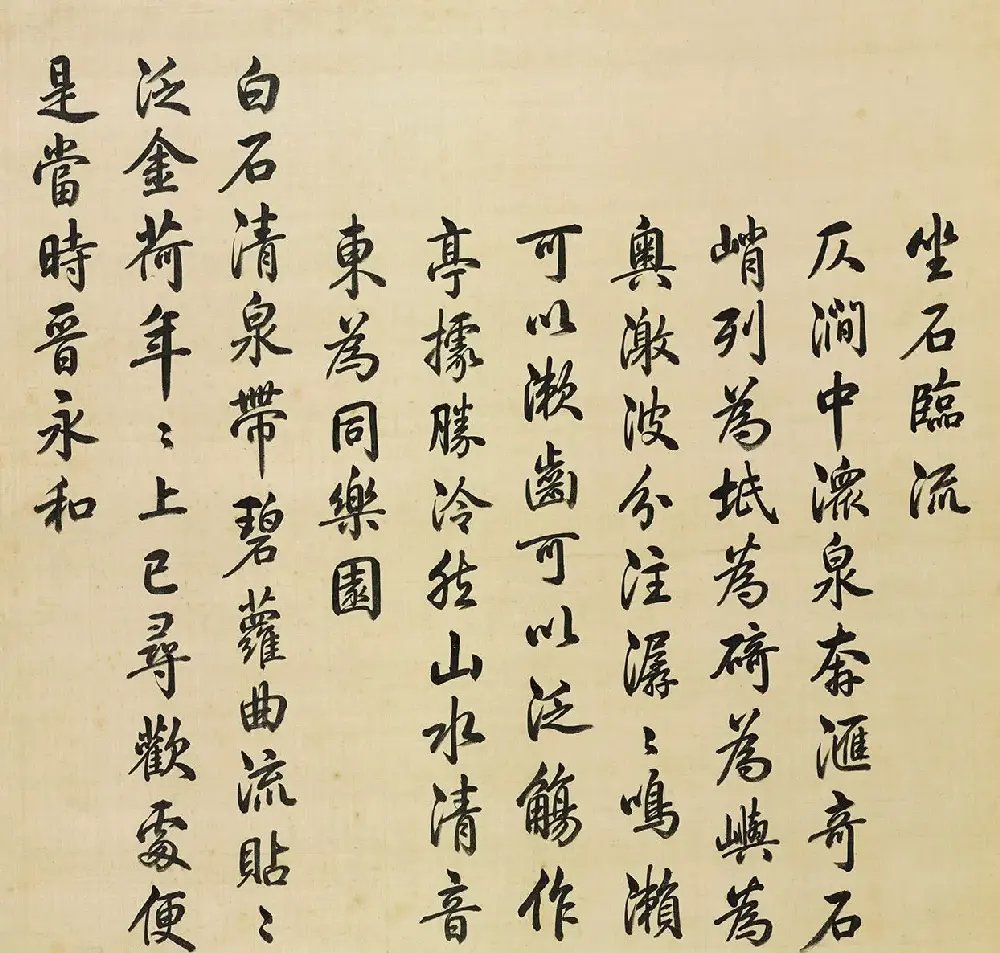 坐石臨流
仄澗中瀤泉奔滙奇石
峭列為坻為碕為嶼為
奧激波分注潺〻鳴瀨
可以漱齒可以泛觴作
亭據勝泠然山水清音
東為同樂園
白石清泉帶碧蘿曲流貼〻
泛金荷年〻上巳尋歡處便
是當時晉永和